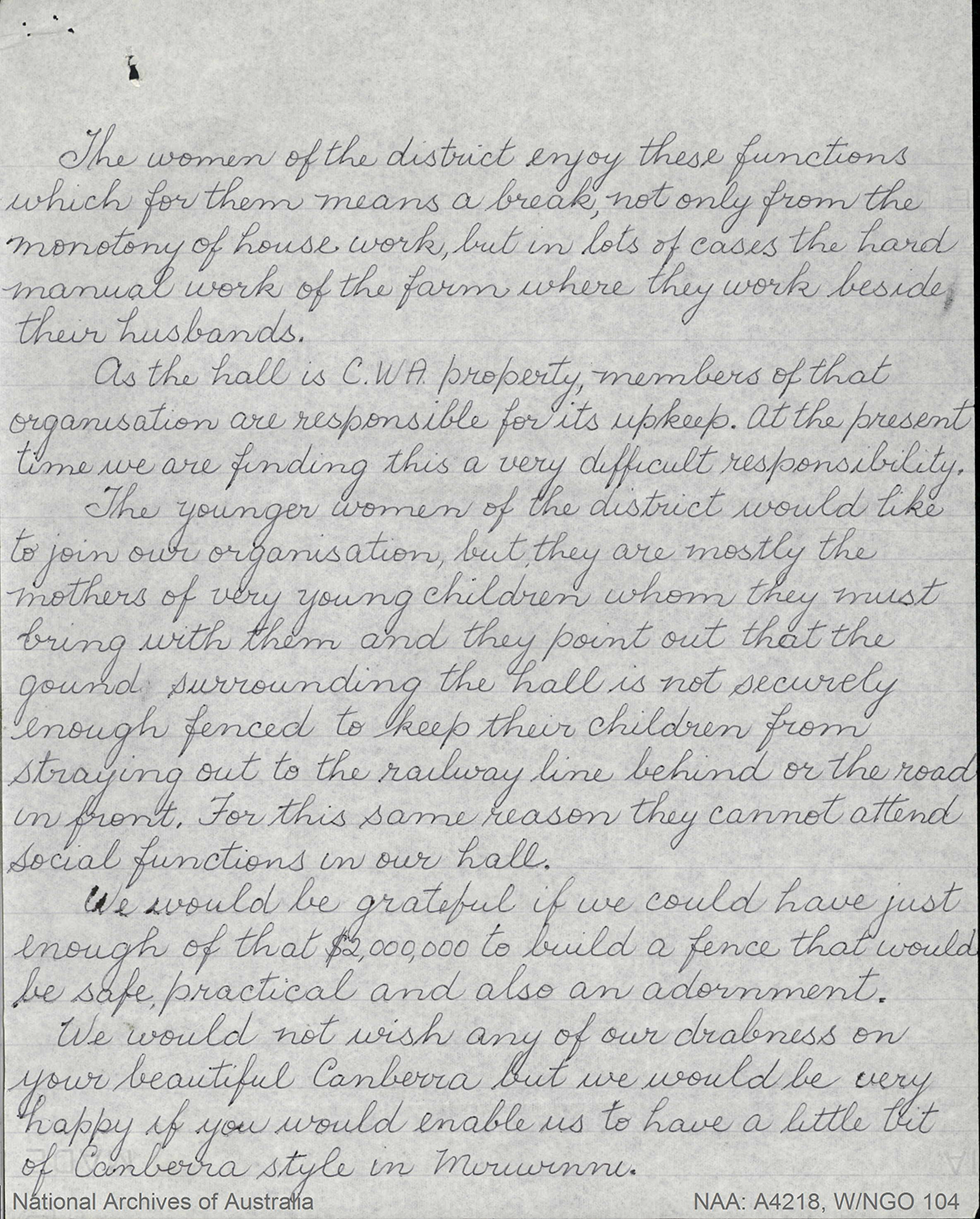 The women of the district enjoy these functions
which for them means a break, not only from the
monotony of house work, but in lots of cases the hard
manual work of the farm where they work beside
their husbands.
As the hall is C.W.A. property, members of that
organisation are responsible for its upkeep. At the present
time we are finding this a very difficult responsibility.
The younger women of the district would like
to join our organisation, but, they are mostly the
mothers of very young children whom they must
bring with them and they point out that the
gound surrounding the hall is not securely
enough fenced to keep their children from
straying out to the railway line behind or the road
in front. For this same reason they cannot attend
social functions in our hall.
We would be grateful if we could have just
enough of that $2,000,000 to build a fence that would
be safe, practical and also an adornment.
We would not wish any of our drabness on
your beautiful Canberra but we would be very
happy if you would enable us to have a little bit
of Canberra style in Miruwinni.
National Archives of Australia
NAA: A4218, W/NGO 104